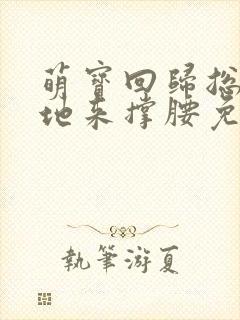 萌寶回歸總
地來撐腰免
執筆游夏